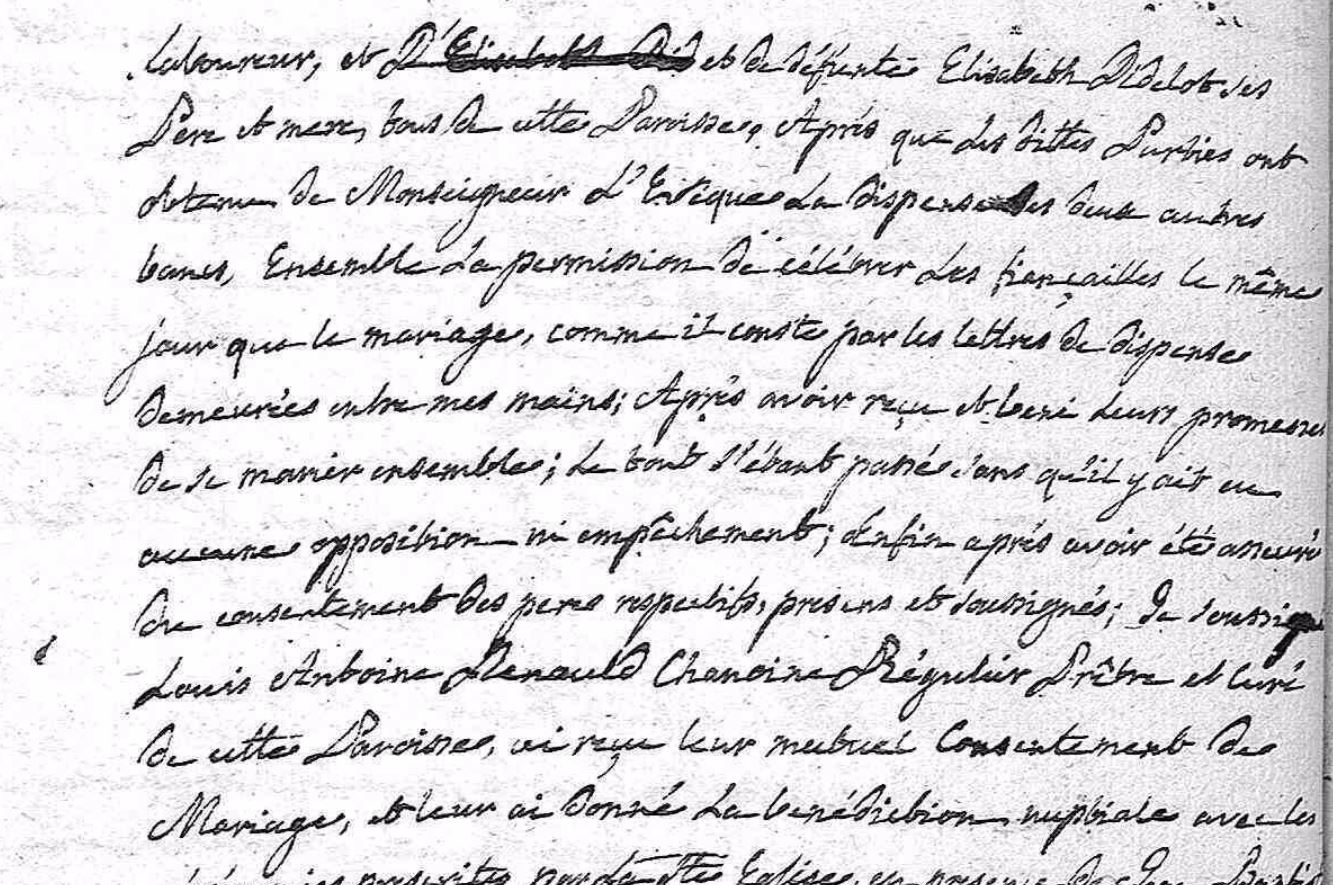 Laboureur, et D'Elisabeth Did et de défunte Elisabeth Didelot ses
Pere et mere, tous de cette Paroisse, Après que les dittes Parties ont
obtenu de Monseigneur L'Evêque La dispense des deux autres
bancs, Ensemble La permission de célébrer Les fiançailles le même
jour que le mariage, comme il conste par les lettres de dispense
Demeurées entre mes mains; Après avoir reçu et beni Leurs promesses
de se marier ensemble; Le tout s'étant passé sans qu'il y ait eu
aucune opposition ni empêchement; Enfin après avoir été assuré
du consentement des peres respectifs, presens et soussignés; Je soussigné
Louis Antoine Renauld Chanoine Régulier Prêtre et Curé
de cette Paroisse, ai reçu leur mutuel Consentement de
Mariage, et leur ai donné La bénédiction nuptiale avec les
prescrites par La Ste Eglise, en presence de